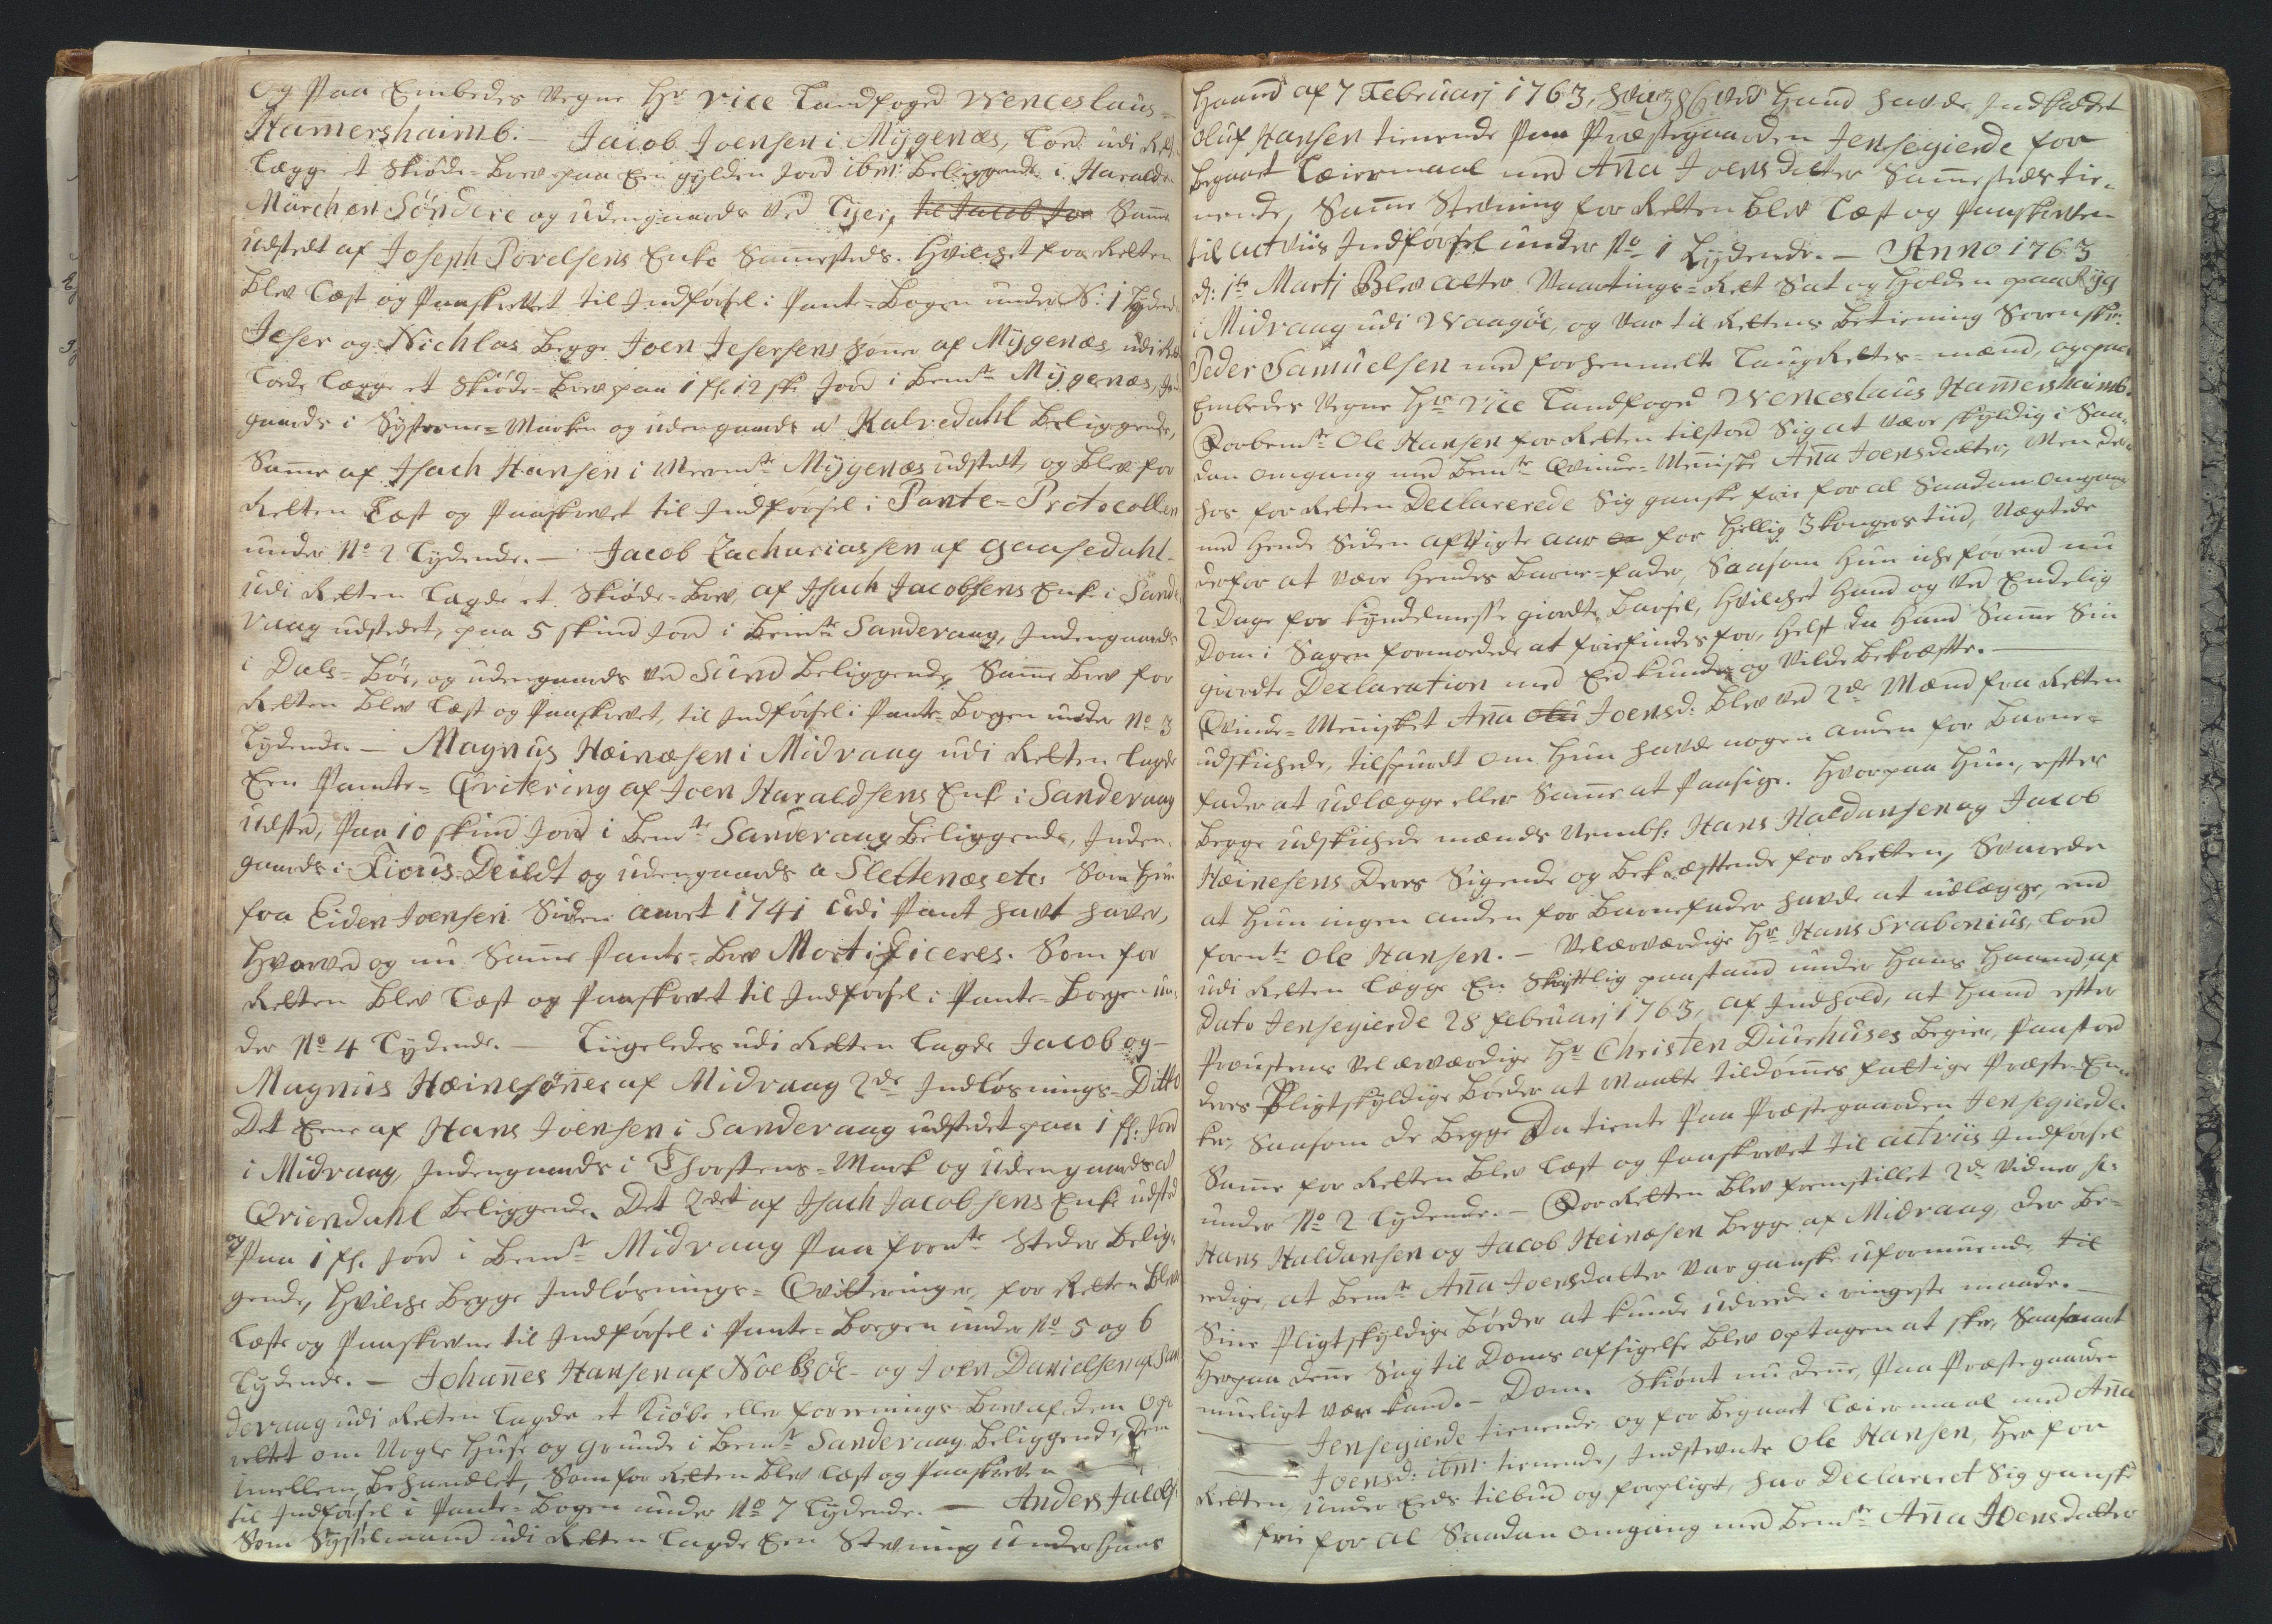 Og Paa Embedes Vegne Hr Vice Landfoged Wenceslaus=
Hamershaimb. Jacob Joensen i Mygenæs, Lod udi Ret
Lægge et Skiøde-Brev paa Een gylden Jord ibm: Beliggende i Haralds
Marchen Søndere og udengaards ved Lijei, til Jacob Joe Samme
udstedt af Joseph Povelsens Enke Sammesteds. Hvilchet for Retten
blev Læst og Paaskrevet til Indførsel i Pante-Bogen under N: 1 Lydend
Jeser og Nichlas begge Joen Jesersens Sønner af Mygenæs udi Ret
Lode Lægge et Skiøde-Brev paa 1 fl. 12 sk. Jord i Bemte Mygenæs, Inden
gaards i Systerne-Marken og udengaards a Kalvedahl Beliggende,
Samme af Jsach Hansen i Mermte Mygenæs udstedt, og blev for
Retten Læst og Paaskrevet til Indførsel i Pante-Protocollen
under No 2 Lydende. — Jacob Zachariassen af Gaasedahl
udi Retten Lagde et Skiøde-Brev, af Jsach Jacobsens Enke i Sande
vaag udstedet, paa 5 skind Jord i Bemte Sandevaag, Indengaards
i Dals-Bøe, og udengaards ved Sund beliggende, Samme Brev for
Retten blev Læst og Paaskrevet, til Indførsel i Pante-Bogen under No 3
Lydende. — Magnus Heinæsen i Midvaag udi Retten Lagde
Een Pante-Qvitering af Joen Haraldsens Enke i Sandevaag
udsted, Paa 10 skind Jord i Bemte Sandevaag Beliggende, Inden-
gaards i Liorus-Deildt og udengaards a Slettenæs etc: Som Hun
fra Eiden Joensen Siden aaret 1741 udi Pant havt haver,
Hvorved og nu Samme Pante-Brev Mortificeres. Som for
Retten blev Læst og Paaskrevet til Indførsel i Pante-Bogen un-
der No 4 Lydende. — Liigeledes udi Retten Lagde Jacob og
Magnus Heinesønner af Midvaag 2de Indløsnings-Ditto
Det Eene af Hans Joensen i Sandevaag udstedet paa 1 fl: Jord
i Midvaag, Indengaards i Thorstens-Mark og udengaards a
Qviendahl beliggende. Det 2det af Jsach Jacobsens Enke udsted
og Paa 1 fl. Jord i Bemte Midvaag Paa formte Steder Belig-
gende, Hvilche begge Indløsnings-Qvitteringer for Retten blev
Læste og Paaskrevne til Indførsel i Pante-Bogen under No 5 og 6
Lydende. — Johannes Hansen af Noelsøe og Joen Davidsen af San
devaag udi Retten Lagde et Kiøbe eller foreenings Brev af dem op
rettet om Nogle Huse og Grunde i Bemte Sandevaag. Beliggende, Dem
imellem behandlet, Som for Retten blev Læst og Paaskreven
til Indførsel i Pante-Bogen under No 7 Lydende. — Anders Jacobs:
Som Sysselmand udi Retten Lagde Een Stevning under Hans
Haand af 7 Februarj 1763, hvorved Hand havde Indkaldet
Oluf Hansen tienende Paa Præstegaarden Jensegierde for
begaaet Leiermaal med Anna Joensdatter Sammesteds tie-
nende, Samme Stevning for Retten blev Læst og Paaskreven
til actviis Indførsel under No 1 Lydende. — Anno 1763
d: 1te Martj Blev atter Vaartings-Ret Sat og Holden paa Ryg
i Midvaag udi Waagøe, og var til Rettens Betiening Sorenskr:
Peder Samuelsen med forhenmelte Laug Rettes-mænd, og paa
Embedes Vegne Hr Vice Landfoged Wenceslaus Hamershaimb.
Forbemte Ole Hansen for Retten tilstod Sig at være skyldig i Saa-
dan omgang med bemte Qvinde-Menniske Anna Joensdatter, Men der
hos for Retten Declarerede Sig ganske frie for al Saadan omgang
med Hende Siden afvigte aar for Hellig 3 Kongers tiid, Nægtede
derfor at være Hendes Barne-fader, Saasom Hun iche før end nu
2 Dage for Kyndelmesse giorde Barsel, Hvilchet Hand og ved Endelig
Dom i Sagen formodede at friefindes for, Helst da Hand Samme Sin
giorde Declaration med Eed kunde og Vilde bekræfte. —
Qvinde-Mennisket Anna Joensd: blev ved 2de Mænd fra Retten
udskichede, tilspurdt om Hun havde nogen anden for Barne-
fader at udlægge eller Samme at Paasige. Hvorpaa Hun, efter
begge udskichede mænds Nembl: Hans Haldansen og Jacob
Heinesens Deres Sigende og Bekræftende for Retten, Svarede
at Hun ingen anden for Barnefader havde at udlægge, end
formte Ole Hansen. — Velærværdige Hr Hans Srabonius, Lod
udi Retten Lægge En Skriftlig paastand under Hans Haand, af
Dato Jensegierde 28 februarj 1763, af Indhold, at Hand efter
Proustens Velærværdige Hr Christen Diurhuses begier, Paastod
deres Pligtskyldige Bøder at Maatte tildømmes fattige Præste-En-
ker, Saasom de begge Da tiente Paa Præstegaarden Jensegierde.
Samme for Retten blev Læst og Paaskrevet til actviis Indførsel
under No 2 Lydende. — For Retten blev fremstillet 2de Vidner s:
Hans Haldansen og Jacob Heinæsen begge af Midvaag, der be-
edige, at bemte Anna Joensdatter var ganske uformuende til
Sine Pligtskyldige Bøder at kunde udrede i ringeste maade. —
Herpaa denne Sag til Doms afsigelse blev optagen at skee, Saasnart
mueligt være kand. — Dom. Skiønt nu denne, Paa Præstegaarden
Jensegierde tienende, og for begaaet Leiermaal med Anna
Joensd: ibm: tienende, Indstevnte Ole Hansen, Her for
Retten, under Eeds tilbud og forpligt, har Declareret Sig ganske
frie for al Saadan omgang med Bemte Anna Joensdatter